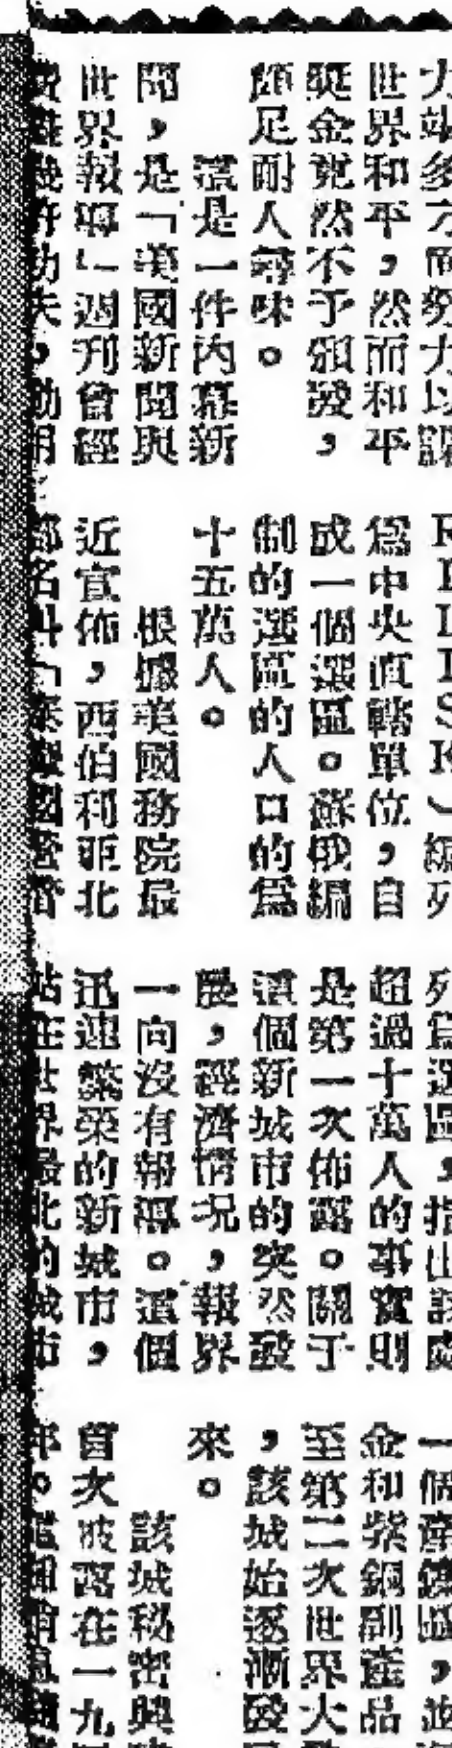 世界和平，然而和平
獎金竟然不予頒發，
頗足耐人尋味。
這是一件內幕新
聞，是「美國新聞與
世界報導」週刊曾經
RILISK）編列
爲中央直轄單位，自
成一個選區。蘇俄編
制的選區的人口的爲
十五萬人。
根據美國務院最
近宣佈，西伯利亞北
列爲選區，指出該處
超過十萬人的事實則
是第一次佈露。關于
這個新城市的突然發
展，經濟情况，報界
一向沒有報導。這個
迅速繁榮的新城市，
站在世界最北的城市
一個產鎳區，並
金和紫銅副產品
至第二次世界大
，該城始逐漸發
來。
該城秘密興
首次披露在一九